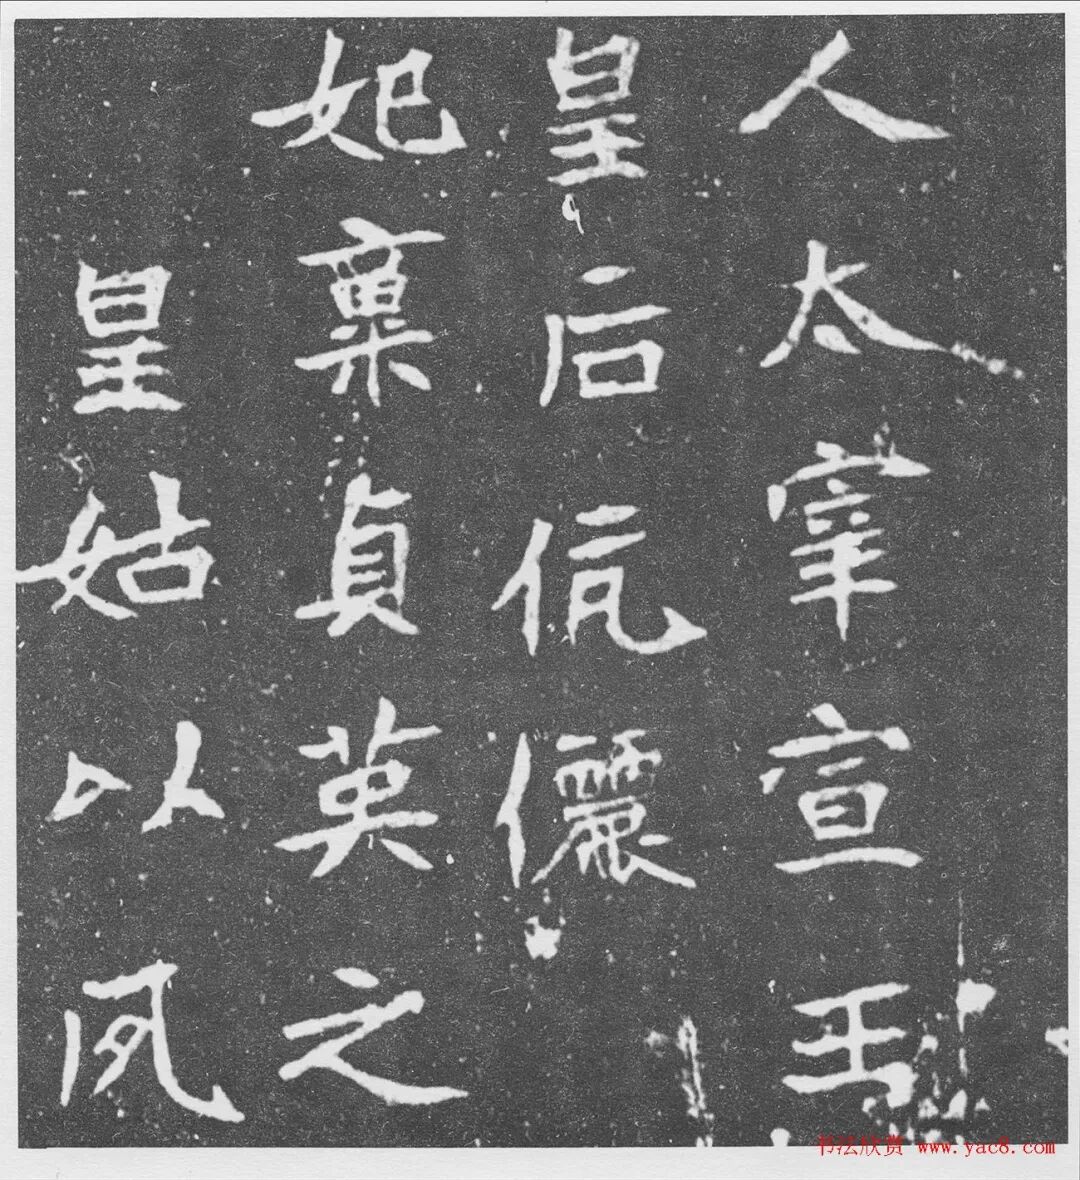 人太宰宣王
皇后伉儷
妃稟貞英之
皇姑以夙
书法欣赏 www.yac8.com